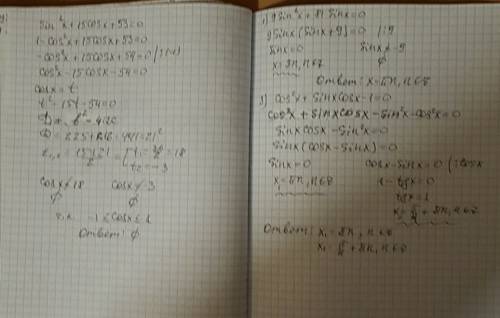 sin²x+15cosx+53=0
1-cos²x+15cosx+53=0
-cos²x+15cosx+54=0 /:(-1)
cos²x-15cosx-54=0
cosx=t
t²-15t-54=0
D=b²-4ac
D=225+216=441=21²
t₁,₂=(15±21)/2=[t₁=36/2=18
t₂=-3
cosx≠18 cosx≠-3
∅ ∅
т.к. -1≤cosx≤1
Ответ: ∅
9sin²x+81sinx=0
9sinx(sinx+9)=0 /:9
sinx=0 sinx≠-9
x=πn, n∈Z ∅
Ответ: x=πn, n∈Z
3) cos²x+sinxcosx-1=0
cos²x+sinxcosx-sin²x-cos²x=0
sinxcosx-sin²x=0
sinx(cosx-sinx)=0
sinx=0 cosx-sinx=0 (:cosx
x₁=πn, n∈Z 1-tgx=0
tgx=1
x=π/4+πn, n∈Z
Ответ: x₁=πn, n∈Z
x₁=π/4+πn, n∈Z